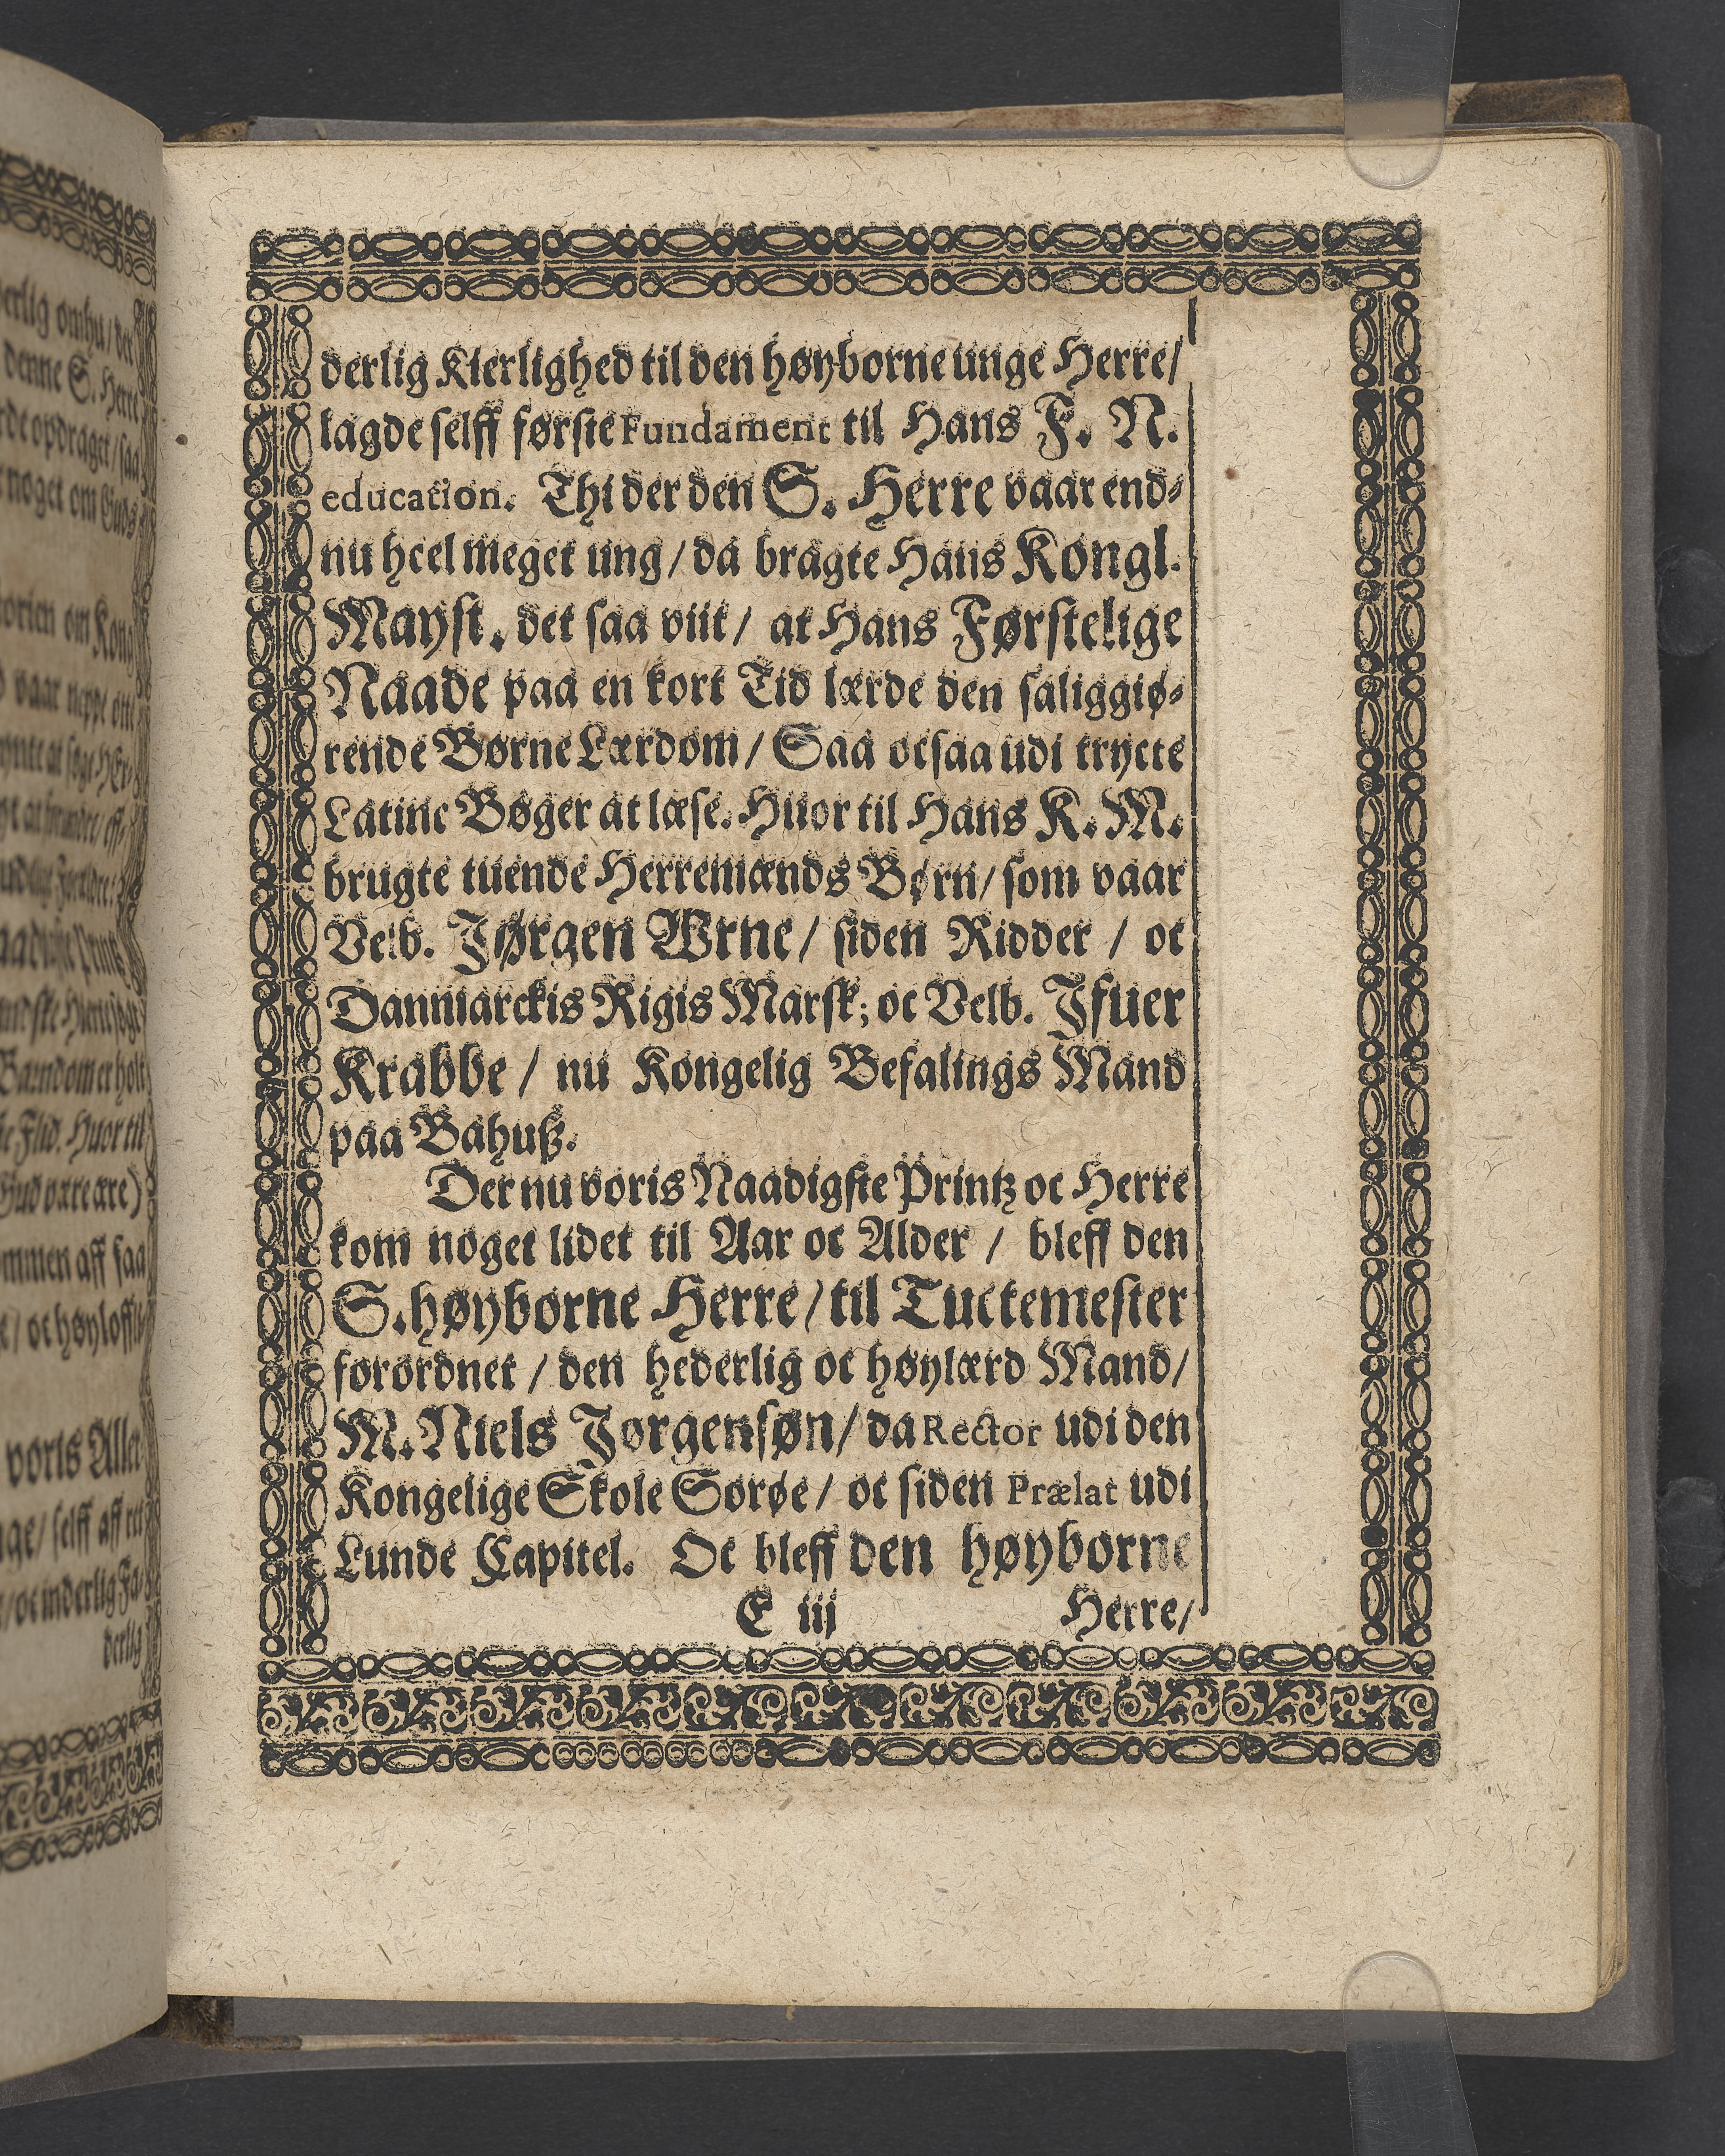 derlig Kierlighed til den høyborne unge Herre/
lagde selff første Fundament til Hans F. N.
education. Thi der den S. Herre vaar end-
nu heel meget ung/ da bragte Hans Kongl.
Mayst. det saa viit/ at Hans Førstelige
Naade paa en kort Tid lærde den saliggiø-
rende Børne Lærdom/ Saa ocsaa udi tryckte
Latine Bøger at læse. Huor til Hans K. M.
brugte tuende Herremænds Børn/ som vaar
Velb. Jørgen Wrne/ siden Ridder / oc
Danmarckis Rigis Marsk; oc Velb. Jfuer
Krabbe / nu Kongelig Befalings Mand
paa Bahuß.
Der nu voris Naadigste Printz oc Herre
kom noget lidet til Aar oc Alder / bleff den
S. høyborne Herre/ til Tucktemester
forordnet / den hederlig oc høylærd Mand/
M. Niels Jørgensøn/ da Rector udi den
Kongelige Skole Sorøe/ oc siden Prælat udi
Lunde Capitel. Oc bleff den høyborne
E iij Herre/